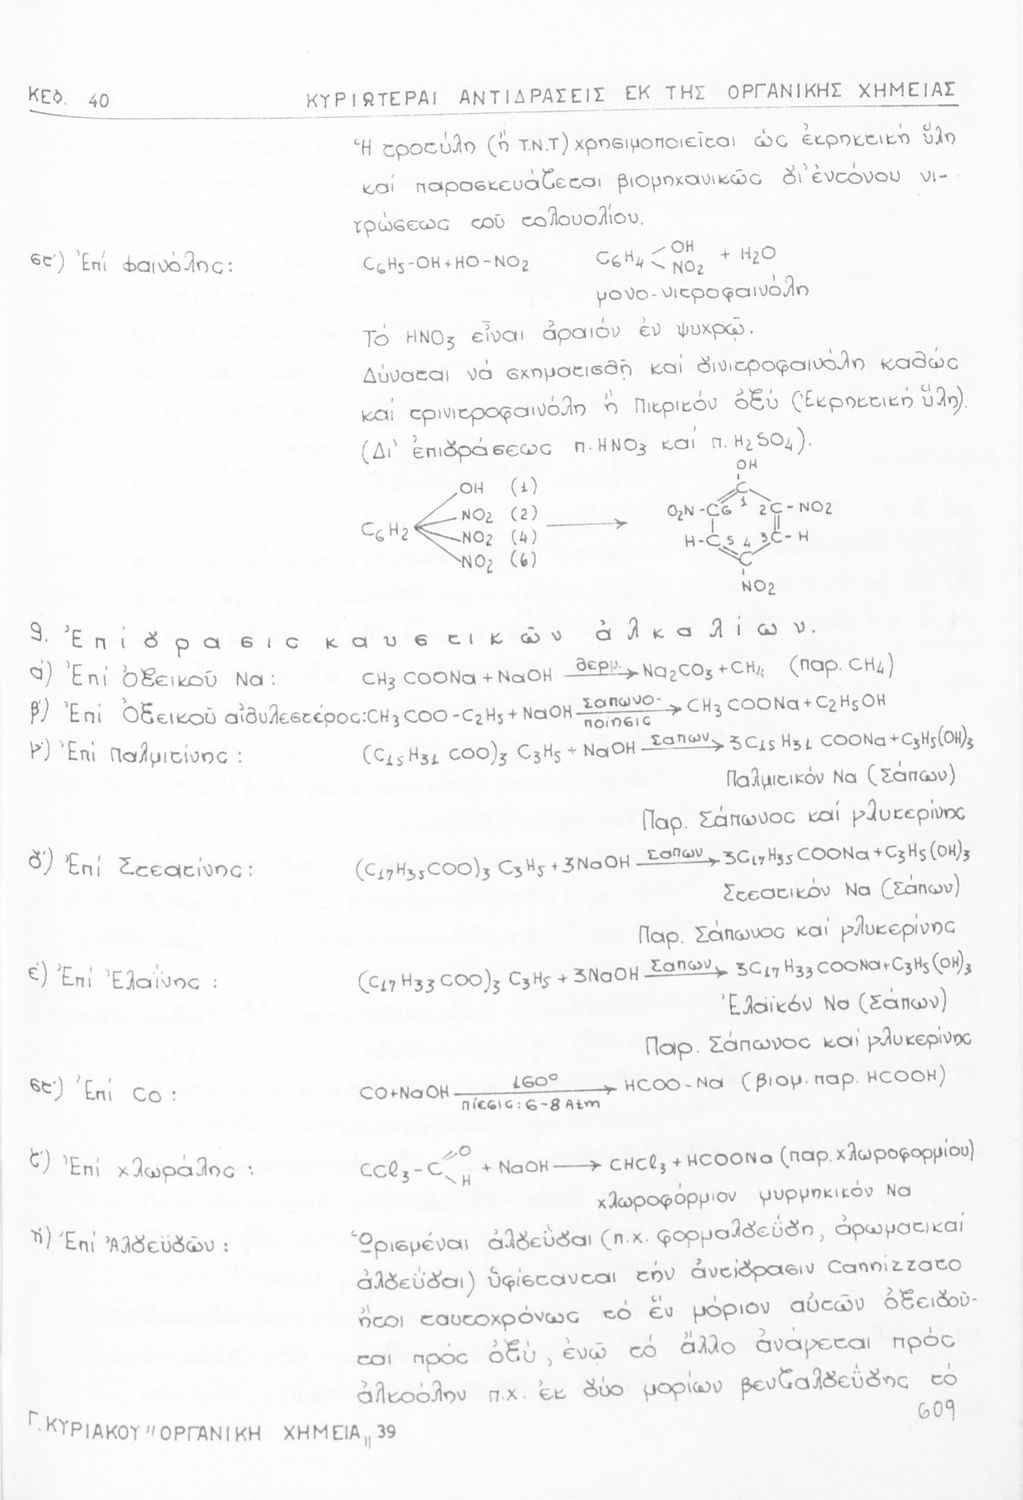 ΚΕΦ. 40 ΚΥΡΙΩΤΕΡΑΙ ΑΝΤΙΔΡΑΣΕΙΣ ΕΚ ΤΗΣ ΟΡΓΑΝΙΚΗΣ ΧΗΜΕΙΑΣ
Ἡ τροτύλη (ἤ T.N.T) χρησιμοποιεῖται ὡς ἐκρηκτική ὕλη
καί παρασκευάζεται βιομηχανικῶς δι' ἐντόνου νι-
τρώσεως τοῦ τολουολίου.
στ') Ἐπί φαινόλης: C6H5-OH+HO-NO2 C6H4 < OH NO2 + H2O
μονο-νιτροφαινόλη
Τό HNO3 εἶναι ἀραιόν ἐν ψυχρῷ.
Δύναται νά σχηματισθῇ καί δινιτροφαινόλη καθώς
καί τρινιτροφαινόλη ἤ Πικρικόν ὀξύ (Ἐκρηκτική ὕλη).
(Δι' ἐπιδράσεως π. HNO3 καί π. H2SO4).
OH
OH (1) C
NO2 (2) O2N-C6 1 2C-NO2
C6H2 NO2 (4) → H-C 5 4 3C-H
NO2 (6) C
NO2
9. Ἐπίδρασις καυστικῶν ἀλκαλίων.
α) Ἐπί Ὀξεικοῦ Na: CH3COONa + NaOH θερμ.→ Na2CO3 + CH4 (παρ. CH4)
β') Ἐπί Ὀξεικοῦ αἰθυλεστέρος: CH3COO-C2H5 + NaOH Σαπωνο-ποίησις→ CH3COONa + C2H5OH
γ') Ἐπί Παλμιτίνης: (C15H31COO)3C3H5 + NaOH Σαπων→ 3C15H31COONa + C3H5(OH)3
Παλμιτικόν Na (Σάπων)
Παρ. Σάπωνος καί γλυκερίνης
δ') Ἐπί Στεατίνης: (C17H35COO)3C3H5 + 3NaOH Σαπων→ 3C17H35COONa + C3H5(OH)3
Στεατικόν Na (Σάπων)
Παρ. Σάπωνος καί γλυκερίνης
ἐ) Ἐπί Ἐλαΐνης: (C17H33COO)3C3H5 + 3NaOH Σαπων→ 3C17H33COONa + C3H5(OH)3
Ἐλαϊκόν Na (Σάπων)
Παρ. Σάπωνος καί γλυκερίνης
στ') Ἐπί CO: CO+NaOH 160° πίεσις: 6-8 Atm → HCOO-Na (βιομ. παρ. HCOOH)
ζ') Ἐπί χλωράλης: CCl3-C O H + NaOH → CHCl3 + HCOONa (παρ. χλωροφορμίου)
χλωροφόρμιον μυρμηκικόν Na
ή) Ἐπί Ἀλδεϋδῶν: Ὁρισμέναι ἀλδεΰδαι (π.χ. φορμαλδεΰδη, ἀρωματικαί
ἀλδεΰδαι) ὑφίστανται τήν ἀντίδρασιν Cannizzaro
ἤτοι ταυτοχρόνως τό ἕν μόριον αὐτῶν ὀξειδοῦ-
ται πρός ὀξύ, ἐνῷ τό ἄλλο ἀνάγεται πρός
ἀλκοόλην π.χ. ἐκ δύο μορίων βενζαλδεΰδης τό
Γ. ΚΥΡΙΑΚΟΥ "ΟΡΓΑΝΙΚΗ ΧΗΜΕΙΑ" 39 609